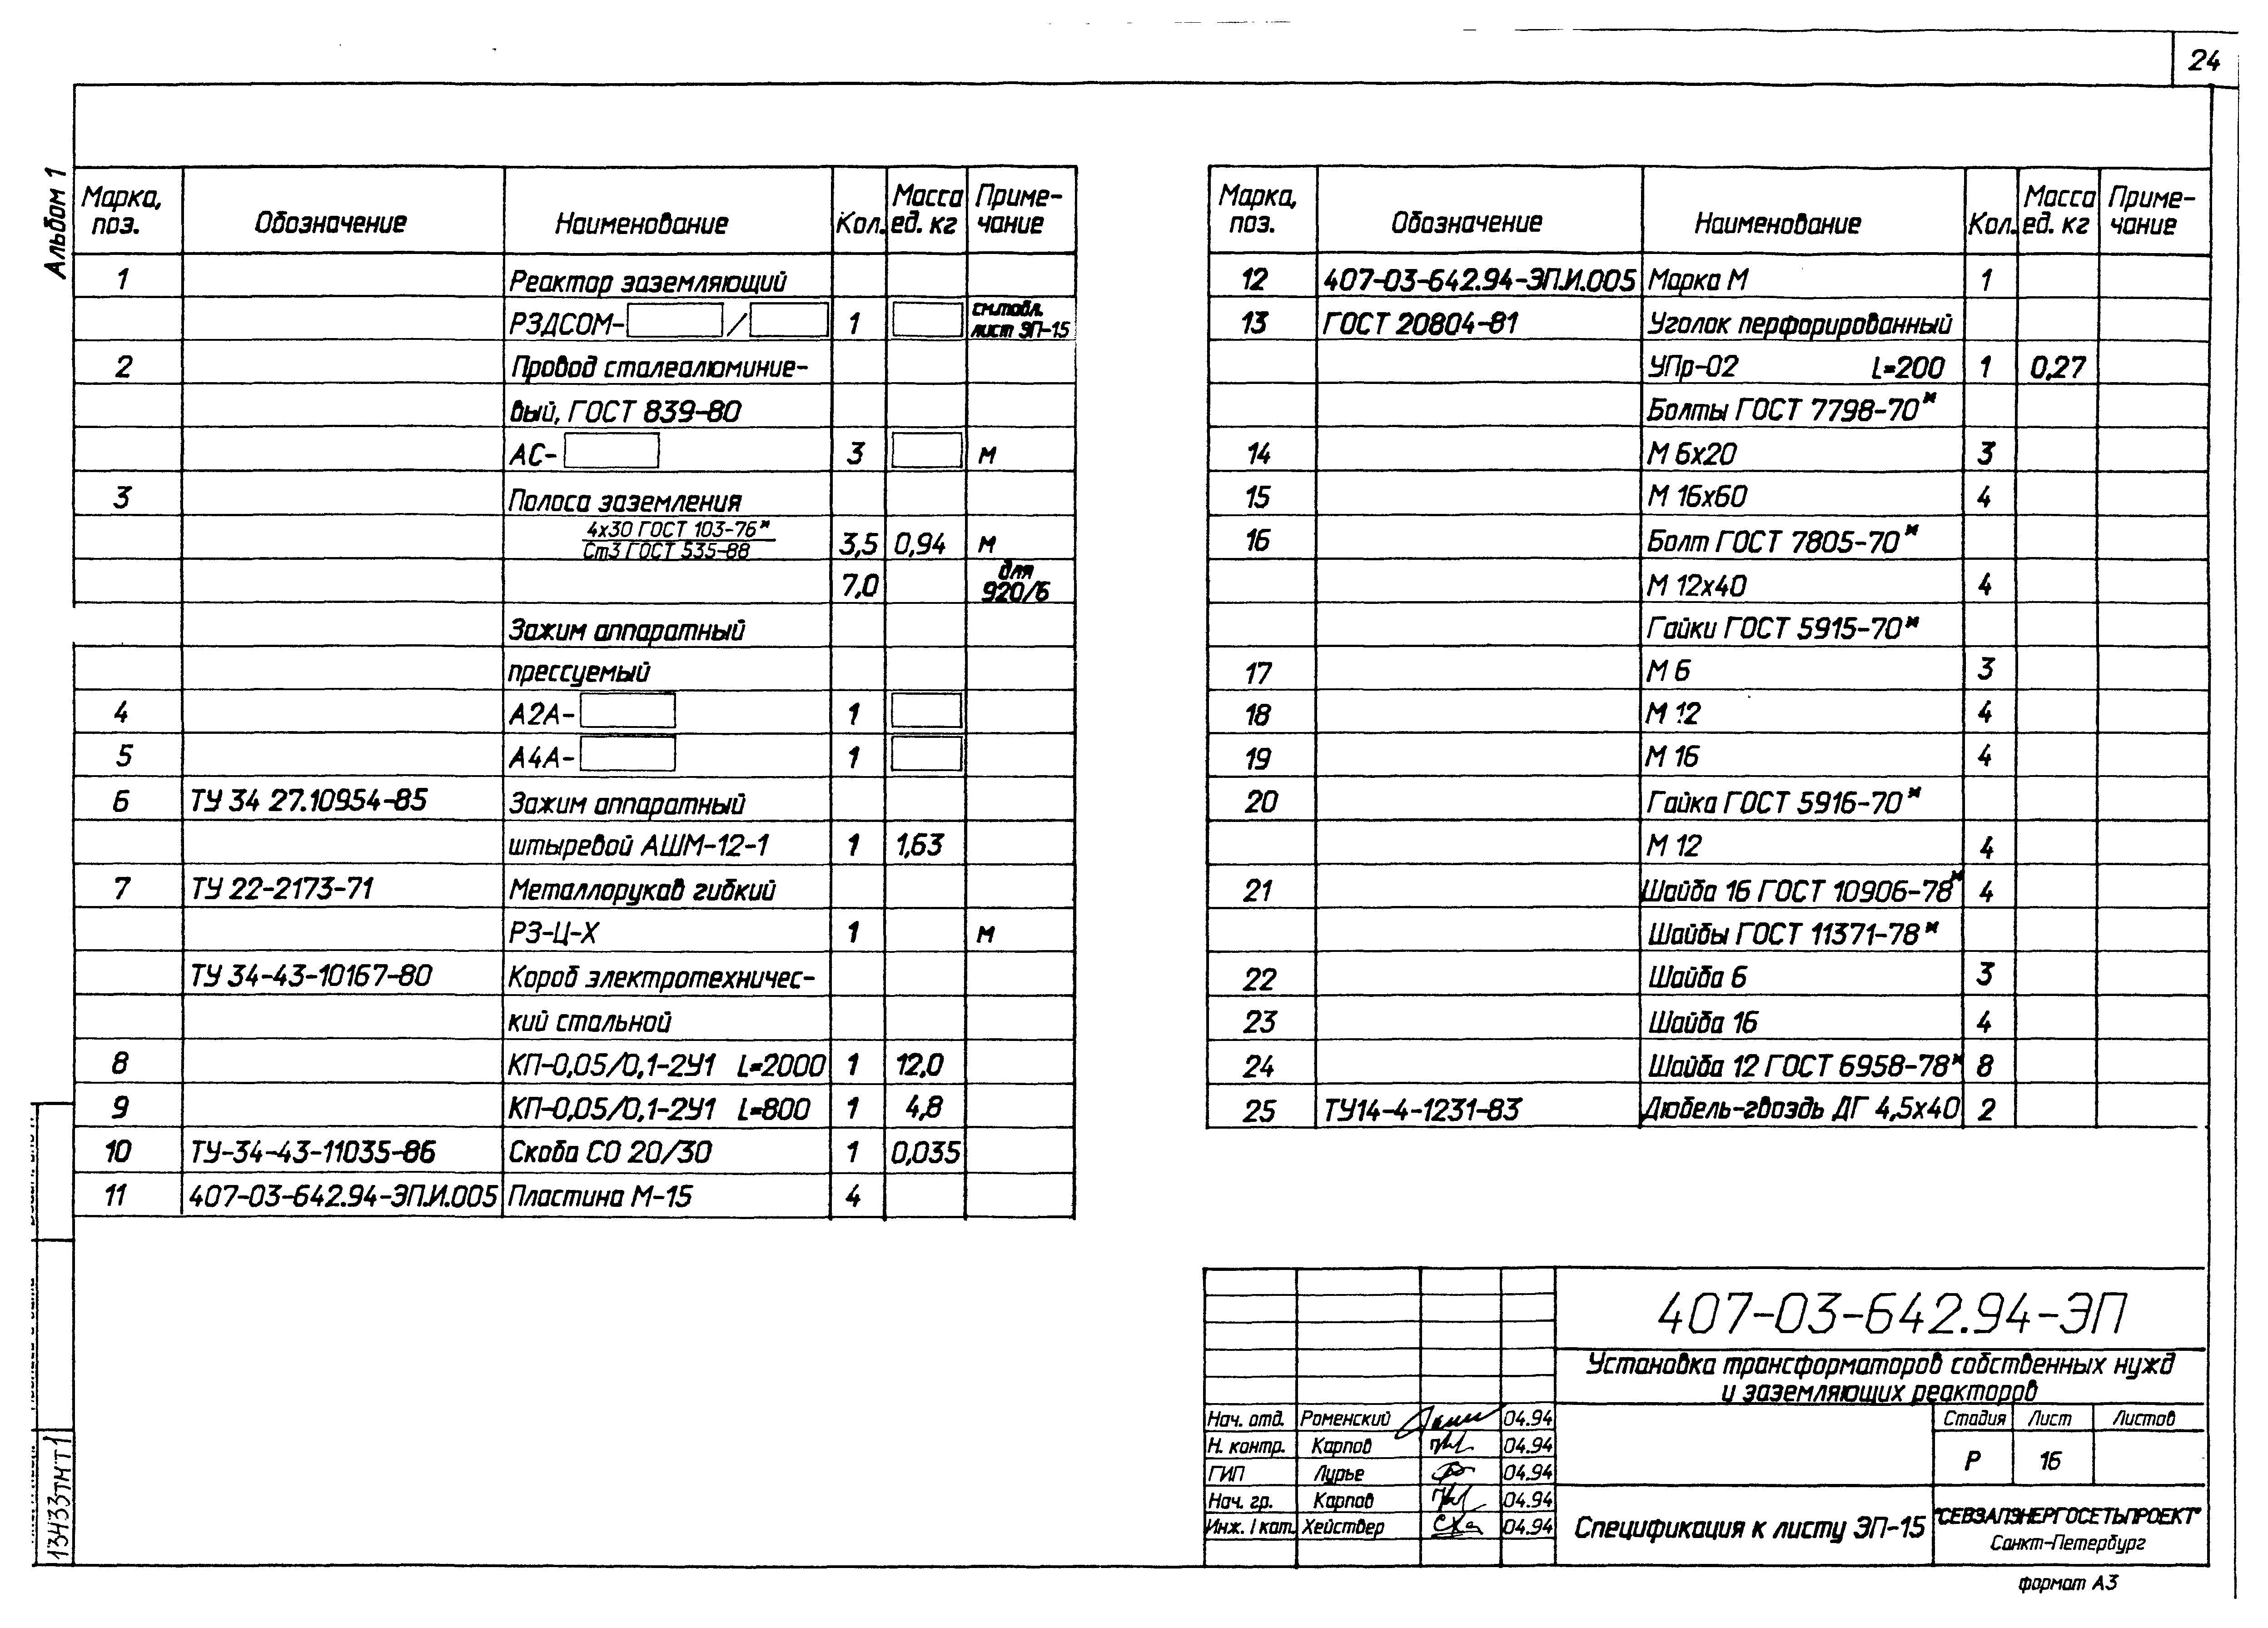 24
Альбом 1
Марка, поз. Обозначение Наименование Кол. Масса ед. кг Приме-чание
1 Реактор заземляющий
РЗДСОМ- / 1 см.табл. лист ЭП-15
2 Провод сталеалюминие-
вый, ГОСТ 839-80
АС- 3 м
3 Полоса заземления
4х30 ГОСТ 103-76*
Ст3 ГОСТ 535-88 3,5 0,94 м
7,0 для 920/6
Зажим аппаратный
прессуемый
4 А2А- 1
5 А4А- 1
6 ТУ 34 27.10954-85 Зажим аппаратный
штыревой АШМ-12-1 1 1,63
7 ТУ 22-2173-71 Металлорукав гибкий
РЗ-Ц-Х 1 м
ТУ 34-43-10167-80 Короб электротехничес-
кий стальной
8 КП-0,05/0,1-2У1 L=2000 1 12,0
9 КП-0,05/0,1-2У1 L=800 1 4,8
10 ТУ-34-43-11035-86 Скоба СО 20/30 1 0,035
11 407-03-642.94-ЭП.И.005 Пластина М-15 4
Марка, поз. Обозначение Наименование Кол. Масса ед. кг Приме-чание
12 407-03-642.94-ЭП.И.005 Марка М 1
13 ГОСТ 20804-81 Уголок перфорированный
УПр-02 L=200 1 0,27
Болты ГОСТ 7798-70*
14 М 6х20 3
15 М 16х60 4
16 Болт ГОСТ 7805-70*
М 12х40 4
Гайки ГОСТ 5915-70*
17 М 6 3
18 М 12 4
19 М 16 4
20 Гайка ГОСТ 5916-70*
М 12 4
21 Шайба 16 ГОСТ 10906-78* 4
Шайбы ГОСТ 11371-78*
22 Шайба 6 3
23 Шайба 16 4
24 Шайба 12 ГОСТ 6958-78* 8
25 ТУ14-4-1231-83 Дюбель-гвоздь ДГ 4,5х40 2
407-03-642.94-ЭП
Установка трансформаторов собственных нужд
и заземляющих реакторов
Нач. отд. Роменский 04.94
Н. контр. Карпов 04.94
ГИП Лурье 04.94
Нач. гр. Карпов 04.94
Инж. I кат. Хействер 04.94
Стадия Лист Листов
Р 16
Спецификация к листу ЭП-15
"СЕВЗАПЭНЕРГОСЕТЬПРОЕКТ"
Санкт-Петербург
формат А3
13433тм т1